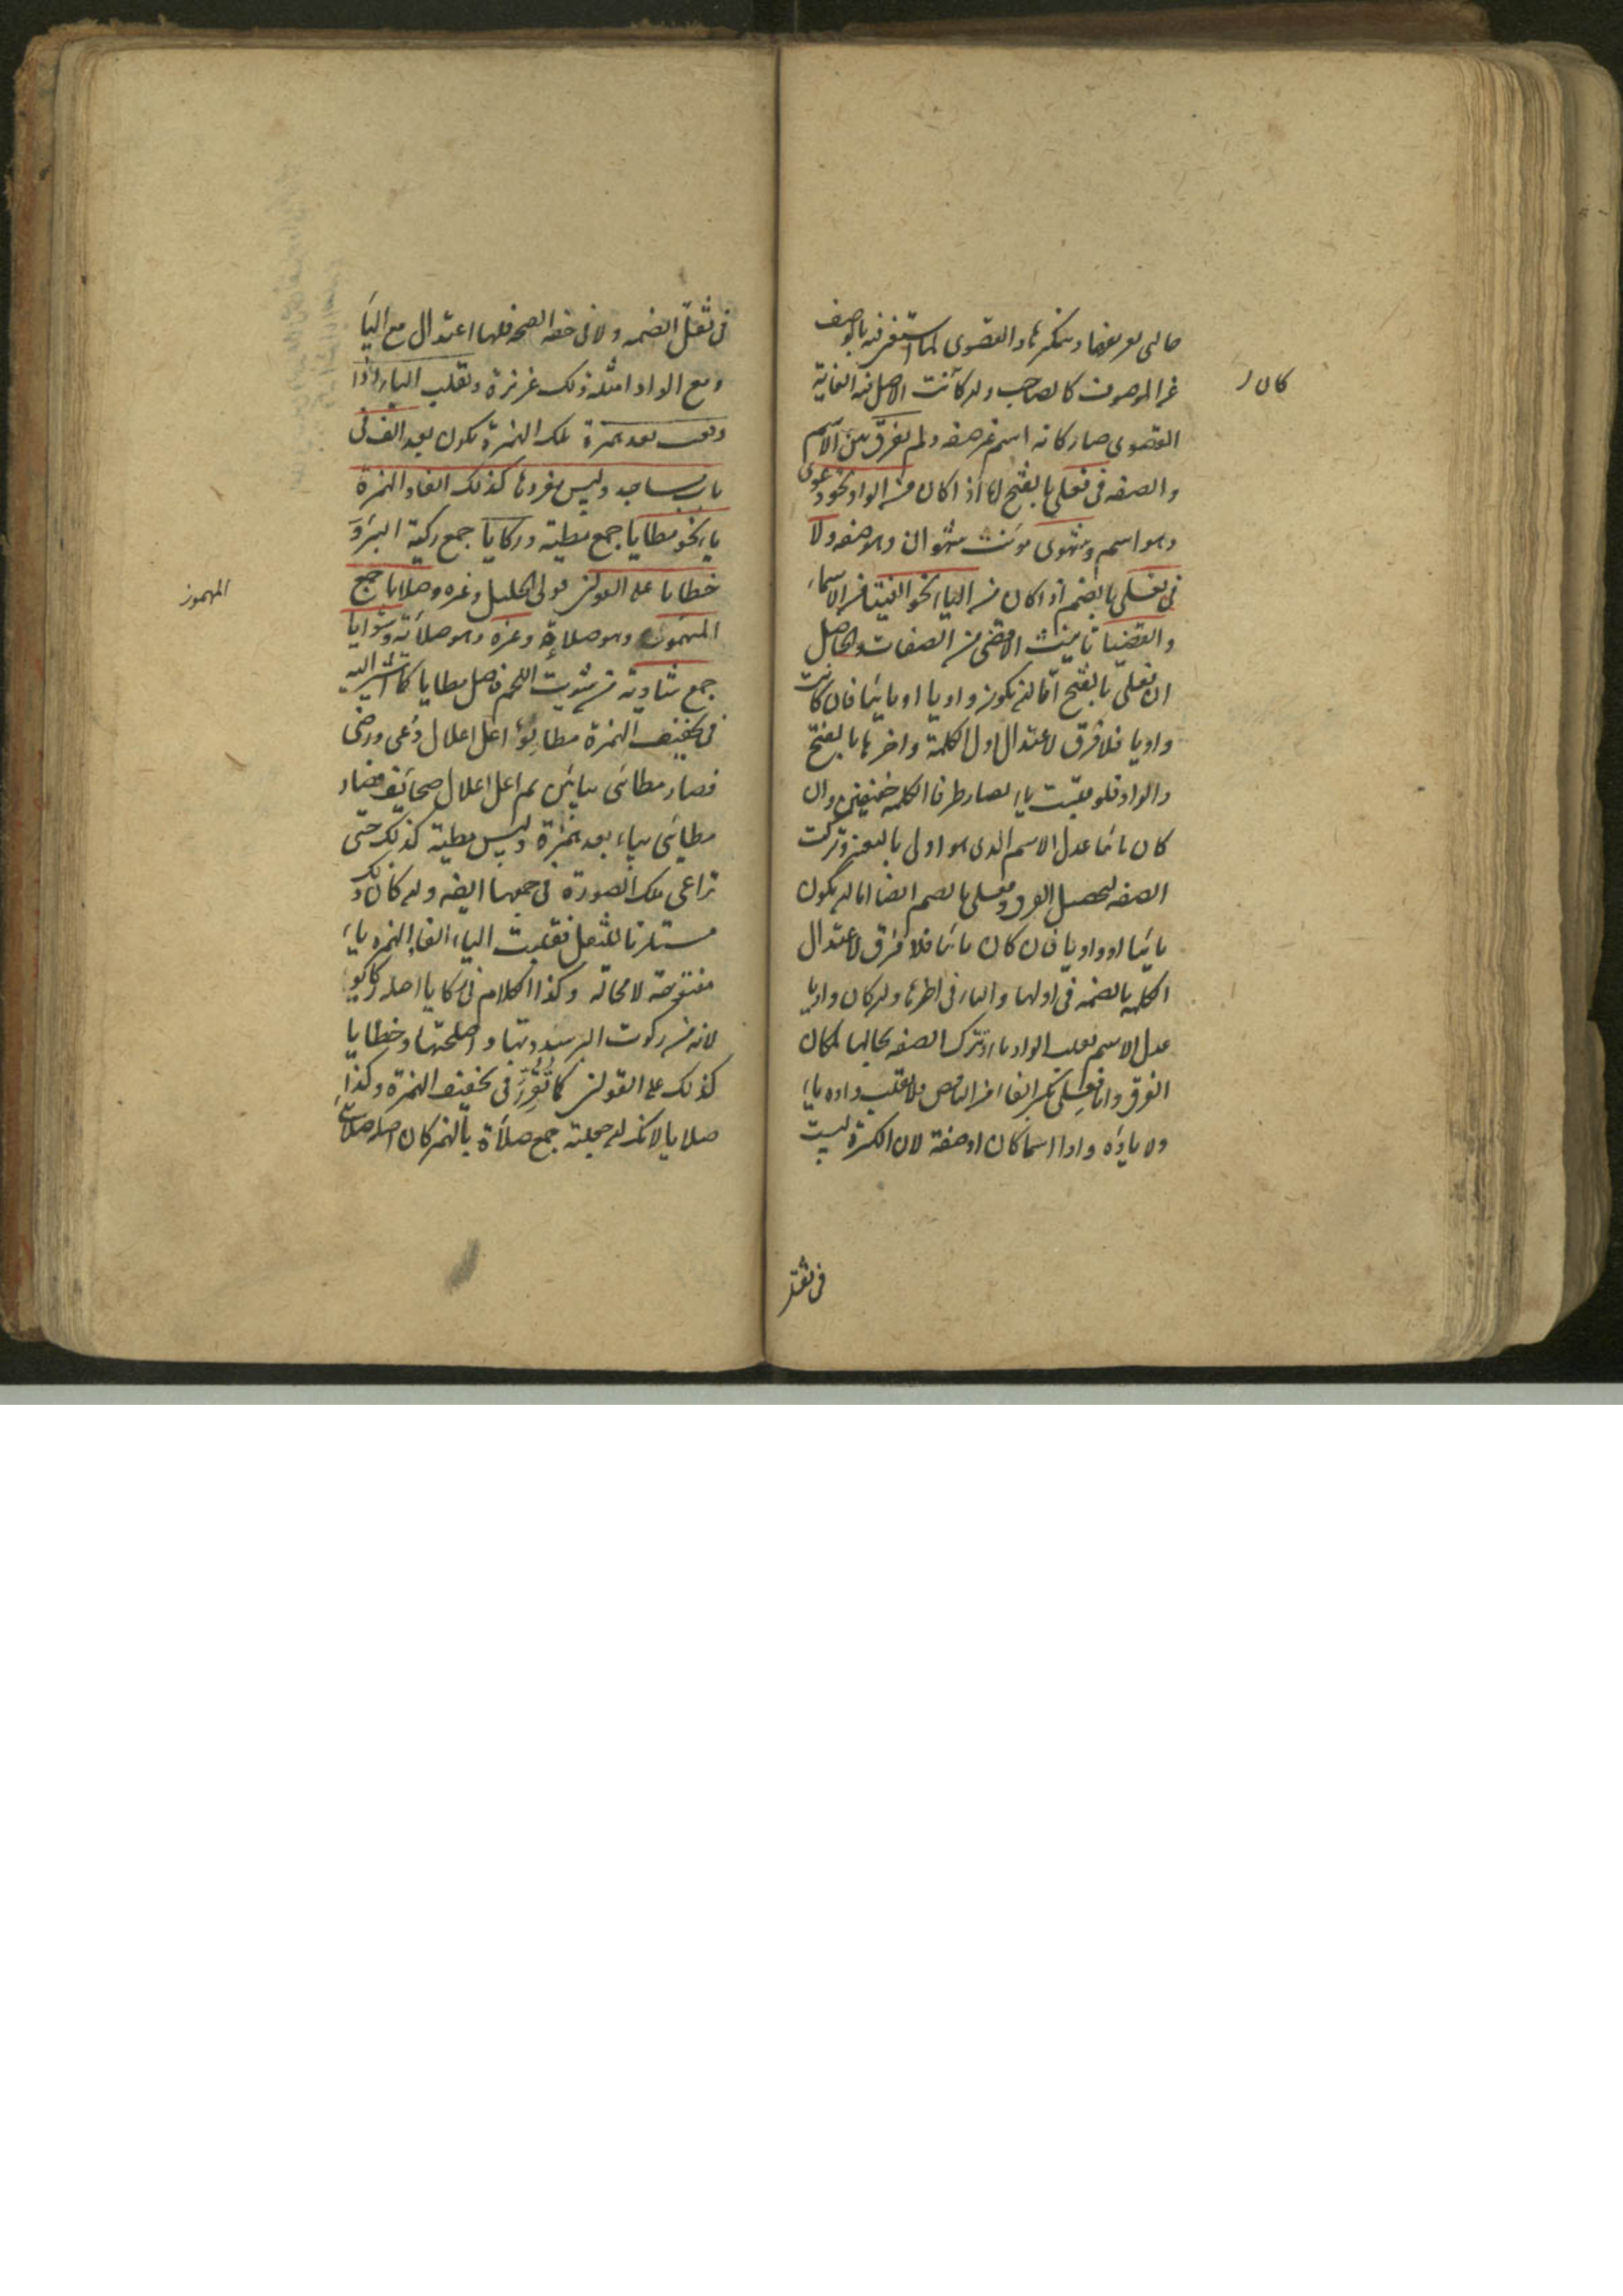 حالى تعريفها وتنكيرها والقصوى لما استغنى فيه بالوصف
عن الموصوف كالصاحب ولو كانت الاصل فيه الغاية
كان
القصوى صار كانه اسم غير صفة ولم يفرق بين الاسم
والصفة فى فعلى بالفتح لما اذا كان من الواو نحو دعوى
وهو اسم وشهوى مونث شهوان وهو صفة ولا
فى فعلى بالضم اذا كان من الياء نحو الفتيا من الاسماء
والقضيا تانيث الاقضى من الصفات والحاصل
ان فعلى بالفتح اما ان يكون واويا او يائيا فان كانت
واويا فلا فرق لاعتدال اول الكلمة واخرها بالفتح
والواو فلو قلبت ياء لصار طرفا الكلمة خفيفين وان
كان يائيا عدل الاسم الذى هو اولى بالتغير وتركت
الصفة ليحصل الفرق وفعلى بالضم ايضا اما ان يكون
يائيا او واويا فان كان يائيا فلا فرق لاعتدال
الكلمة بالضمة فى اولها والياء فى اخرها وان كان واويا
عدل الاسم بقلب الواو ياء وترك الصفة بحالها لمكان
الفرق واما فعلى بكسر الفاء من الناقص فلا تقلب واوه ياء
ولا ياؤه واوا اسما كان او صفة لان الكسرة ليست
فى ثقل
فى ثقل الضمة ولا فى خفة الفتحة فلها اعتدال مع الياء
ومع الواو امثلة ذلك عزيزة وتقلب الياء اذا
وقعت بعد همزة تلك الهمزة تكون بعد الف فى
باب مساجد وليس مفردها كذلك الفا والهمزة
ياء نحو مطايا جمع مطية وركايا جمع ركية البئر و
خطايا على القولين قولى الخليل وغيره وصلايا جمع
المهموز
المهموز وهو صلاءة وغيره وهو صلاية وشوايا
جمع شاوية من شويت اللحم فاصل مطايا كما اشير اليه
فى تخفيف الهمزة مطايو اعل اعلال دعى ورضى
فصار مطايى بيائين ثم اعل اعلال صحائف فصار
مطائى بياء بعد همزة وليس مطية كذلك حتى
تراعى تلك الصورة فى جمعها ايضه ولو كان ذلك
مستلزما للثقل فقلبت الياء الفا والهمزة ياء
مفتوحة لا محالة وكذا الكلام فى ركايا اصله ركايو
لانه من ركوت البئر سددتها واصلحتها وخطايا
كذلك على القولين كما تقرر فى تخفيف الهمزة وكذا
صلايا جمع صلاءة بالهمز كان اصله صلائى